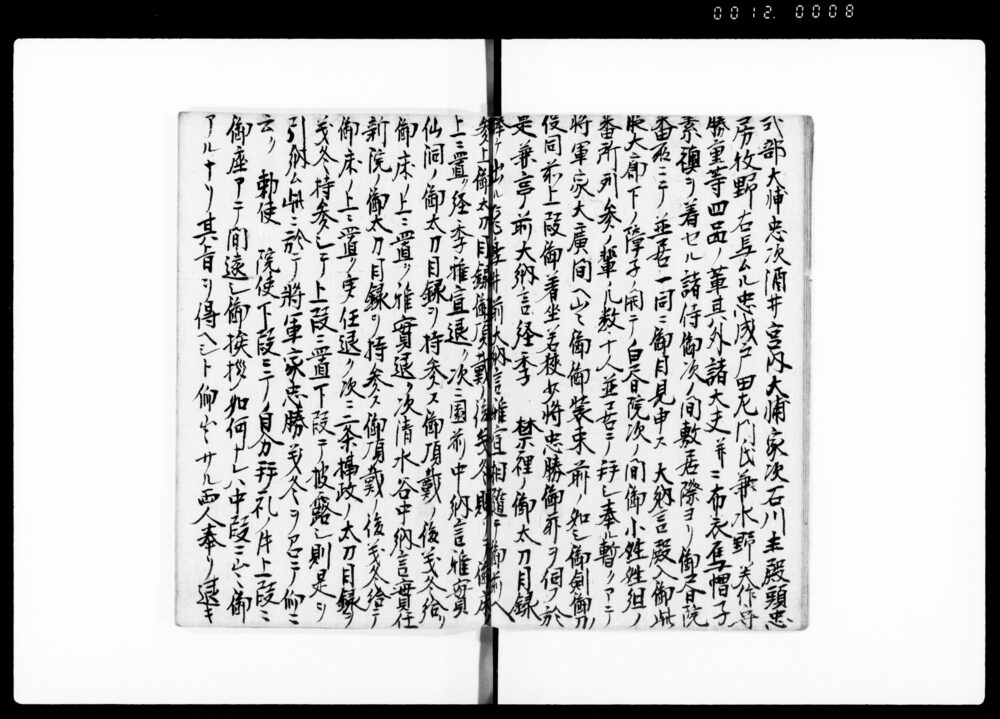 0012.0008
式部大浦忠次酒井宮内大浦家次石川主殿頭忠
房牧野右馬允忠成戸田左門氏兼水野美作守
勝重等四品ノ輩其外諸大夫并ニ布衣烏帽子
素襖ヲ着セル諸侍御次ノ間敷居際ヨリ御白書院
番所ニテ並居一同ニ御目見申ス大納言殿入御此
大廊下ノ障子ノ開テ白書院次ノ間御小姓組ノ
番所列参ノ輩ル数十人並居ニ拝シ奉ル暫クアニテ
将軍家大廣間ヘ出御御装束前ノ如シ御剣御刀
役同前上段御着坐若狭少将忠勝御前ヲ伺フ於
是兼亭前大納言経季 禁裡ノ御太刀目録
出ル 前大納言雅宣相随テ御前ヘ
参上御太刀目録御頂戴ノ後
上ニ置ク経季雅宣退ク次ニ園前中納言雅實
仙洞ノ御太刀目録ヲ持参ス御頂戴ノ後義冬給リ
御床ノ上ニ置ク雅實退ク次清水谷中納言實任
新院ノ御太刀目録ヲ持参ス御頂戴ノ後義冬給テ
御床ノ上ニ置ク実任退ク次ニ二条摂政ノ太刀目録ヲ
義冬持参シテ上段ニ置下段ニテ披露シ則是ヲ
引納ム此ニ於テ将軍家忠勝義冬ヲ召テ仰ニ
云ク 勅使 院使下段ニテノ自分拝礼ノ片上段ニ
御座アテ間遠シ御挨拶如何ナレハ中段ニ出御
アルナリ其旨ヲ得ヘシト仰出サル両人奉リ退キ